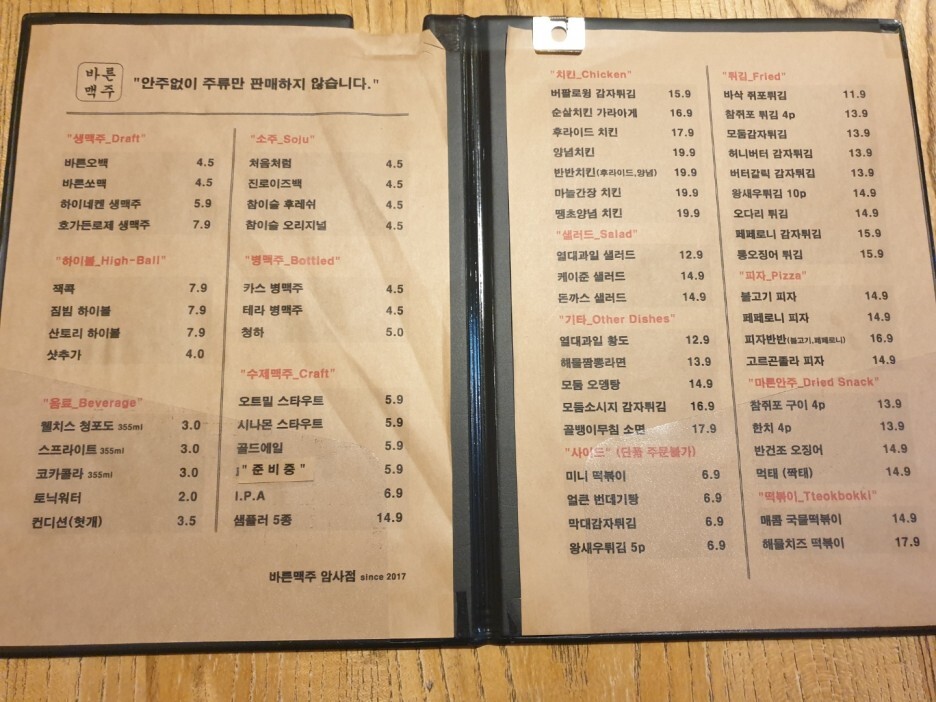 바른
맥주
"안주없이 주류만 판매하지 않습니다."
"생맥주_Draft"
바른오백 4.5
바른쏘맥 4.5
하이네켄 생맥주 5.9
호가든로제 생맥주 7.9
"하이볼_High-Ball"
잭콕 7.9
짐빔 하이볼 7.9
산토리 하이볼 7.9
샷추가 4.0
"음료_Beverage"
웰치스 청포도 355ml 3.0
스프라이트 355ml 3.0
코카콜라 355ml 3.0
토닉워터 2.0
컨디션(헛개) 3.5
"소주_Soju"
처음처럼 4.5
진로이즈백 4.5
참이슬 후레쉬 4.5
참이슬 오리지널 4.5
"병맥주_Bottled"
카스 병맥주 4.5
테라 병맥주 4.5
청하 5.0
"수제맥주_Craft"
오트밀 스타우트 5.9
시나몬 스타우트 5.9
골드에일 5.9
"준비중" 5.9
I.P.A 6.9
샘플러 5종 14.9
바른맥주 암사점 since 2017
"치킨_Chicken"
버팔로윙 감자튀김 15.9
순살치킨 가라아게 16.9
후라이드 치킨 17.9
양념치킨 19.9
반반치킨(후라이드,양념) 19.9
마늘간장 치킨 19.9
땡초양념 치킨 19.9
"샐러드_Salad"
열대과일 샐러드 12.9
케이준 샐러드 14.9
돈까스 샐러드 14.9
"기타_Other Dishes"
열대과일 황도 12.9
해물짬뽕라면 13.9
모둠 오뎅탕 14.9
모둠소시지 감자튀김 16.9
골뱅이무침 소면 17.9
"사이드" (단품 주문불가)
미니 떡볶이 6.9
얼큰 번데기탕 6.9
막대감자튀김 6.9
왕새우튀김 5p 6.9
"튀김_Fried"
바삭 쥐포튀김 11.9
참쥐포 튀김 4p 13.9
모둠감자튀김 13.9
허니버터 감자튀김 13.9
버터갈릭 감자튀김 13.9
왕새우튀김 10p 14.9
오다리 튀김 14.9
페페로니 감자튀김 15.9
통오징어 튀김 15.9
"피자_Pizza"
불고기 피자 14.9
페페로니 피자 14.9
피자반반(불고기,페페로니) 16.9
고르곤졸라 피자 14.9
"마른안주_Dried Snack"
참쥐포 구이 4p 13.9
한치 4p 13.9
반건조 오징어 14.9
먹태 (짝태) 14.9
"떡볶이_Tteokbokki"
매콤 국물떡볶이 14.9
해물치즈 떡볶이 17.9